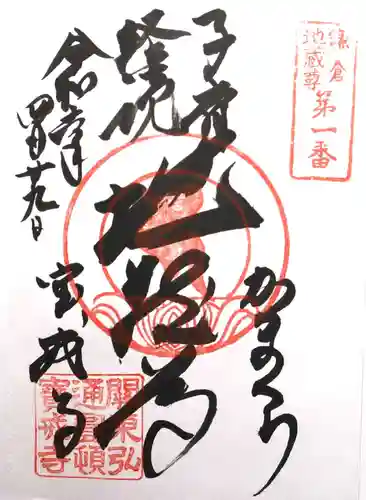 鎌倉
地蔵尊
第一番
子育
経読
地蔵尊
かまくら
令和六年
四月廿九日
宝戒寺
關東弘
通圓頓
寶戒寺